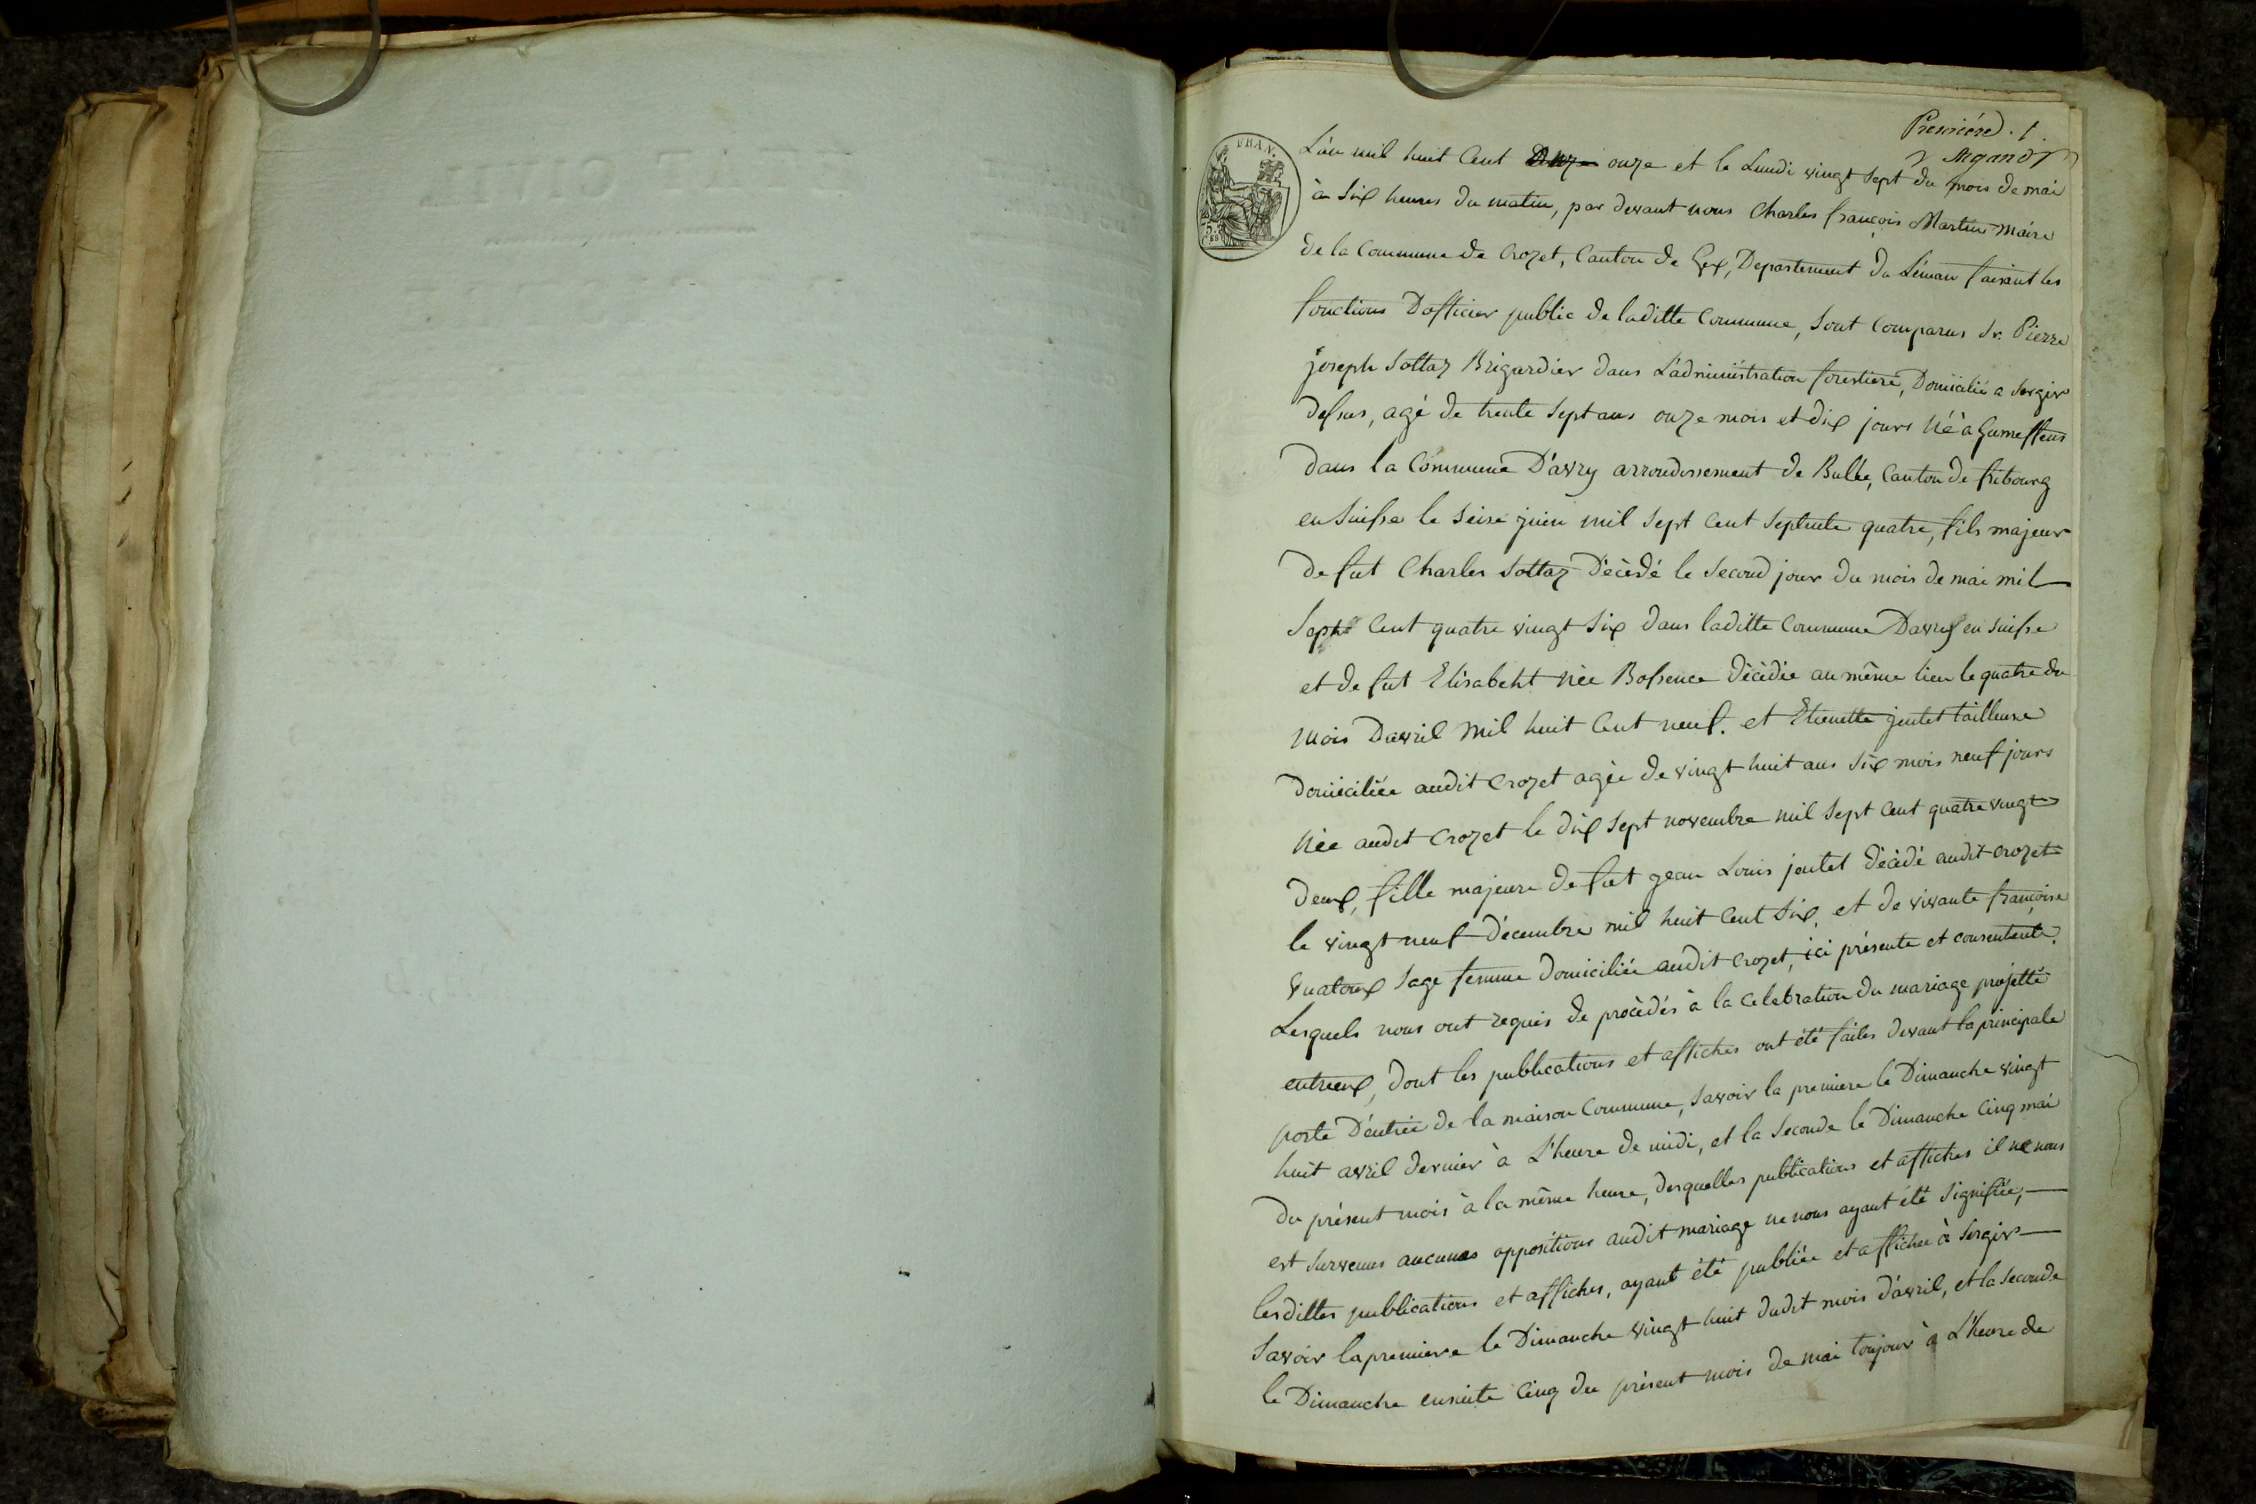 Premiére . 1 .
Argand
L'an mil huit Cent onze et le Lundi vingt sept du mois de mai
à six heures du matin, par devant nous Charles françois Martin Maire
de la Commune de Crozet, Canton de Gex, Departement du Léman faisant les
fonctions D'officier public de laditte Commune, Sont Comparus Sr. Pierre
joseph Sottaz Brigardier dans L'administration forestiere, Domicilié a Sergir
dessus, agé de trente Sept ans onze mois et dix jours Né à Gumeffens
dans la Commune D'avry arrondissement de Bulle, Canton de fribourg
en Suisse le Seise juin mil Sept Cent Septente quatre, fils majeur
de fut Charles Sottaz Décédé le Second jour du mois de mai mil
Sept Cent quatre vingt Six dans laditte Commune Davry en Suisse
et de fut Elisabeht née Bossence Décèdée au même lieu le quatre du
mois Davril Mil huit Cent neuf. et Etienette joutet tailleuse
Domiciliée audit Crozet agée de vingt huit ans Six mois neuf jours
Née audit Crozet le dix Sept novembre mil Sept Cent quatre vingt
Deux, fille majeure de fut jean Louis joutet Décédé audit Crozet
le vingt neuf Décembre mil huit Cent Six, et de vivante françoise
Vuatoux Sage femme Domiciliée audit Crozet, ici présente et consentente.
Lesquels nous ont requis de procèdés à la Celebration du mariage projetté
entreux, Dont les publications et affiches ont été faites devant la principale
porte D'entrée de la maison Commune, Savoir la premiere le Dimanche vingt
huit avril dernier à L'heure de midi, et la Seconde le Dimanche Cinq mai
du présent mois à la même heure, desquelles publications et affiches il ne nous
est Survenus aucunes oppositions audit mariage ne nous ayant été Signifiée,
lesdittes publications et affiches, ayant été publiée et affichée à Sergir
Savoir la premiere le Dimanche vingt huit dudit mois d'avril, et la Seconde
le Dimanche ensuite Cinq du présent mois de mai toujour à L'heure de
FRAN.